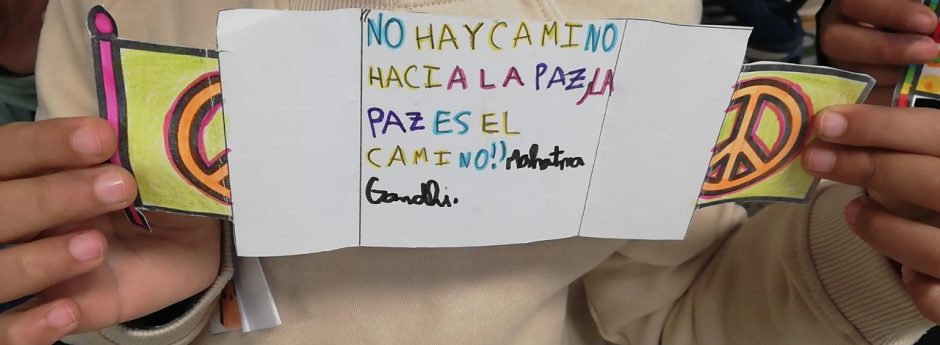 "NO HAY CAMINO
HACIA LA PAZ, LA
PAZ ES EL
CAMINO!!) Mahatma
Gandhi.